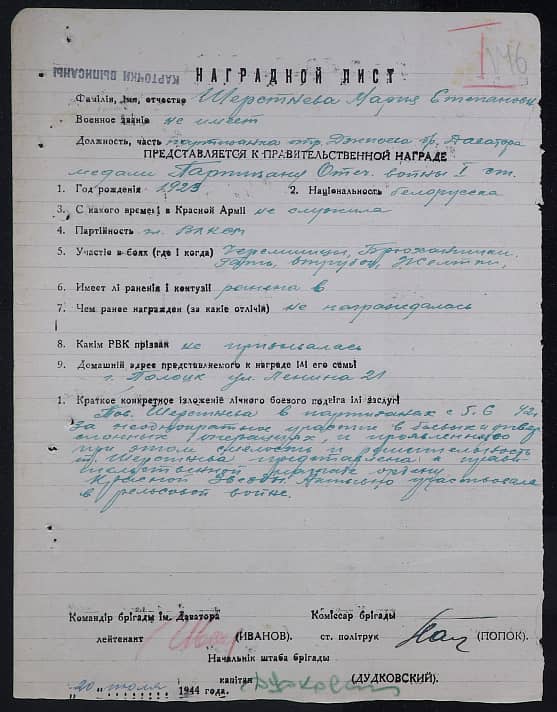 176
КАРТОЧКИ ВЫПИСАНЫ
НАГРАДНОЙ ЛИСТ
Фамілія, імя, отчество Шерстнева Мария Степановна
Военное званіе не имеет
Должность, часть партизанка отр. бр. Даватора
ПРЕДСТАВЛЯЕТСЯ К ПРАВИТЕЛЬСТВЕННОЙ НАГРАДЕ
медали Партизану Отеч. войны I ст.
1. Год рожденія 1923 2. Національность белорусска
3. С какого времені в Красной Арміі не служила
4. Партійность чл. ВЛКСМ
5. Участіе в боях (где і когда)
6. Имеет лі раненія і контузіі ранена в
7. Чем ранее награжден (за какіе отлічія) не награждалась
8. Какім РВК прізван не призывалась
9. Домашній адрес представляемого к награде ілі его семьі
г. Полоцк ул. Ленина 21
1. Краткое конкретное ізложеніе лічного боевого подвіга ілі заслуг
Тов. Шерстнева в партизанках с 5.6 42г.
За неоднократное участие в боевых и
операциях, и проявленную
при этом смелость и решительность
т. Шерстнева представлена к прави-
тельственной награде ордену
Красной Звезды. Активно участвовала
в рельсовой войне.
Командір брігады ім. Даватора Коміссар брігады
лейтенант (ИВАНОВ). ст. політрук (ПОПОК).
Начальнік штаба брігады
капітан (ДУДКОВСКИЙ).
„20“ июля 1944 года.